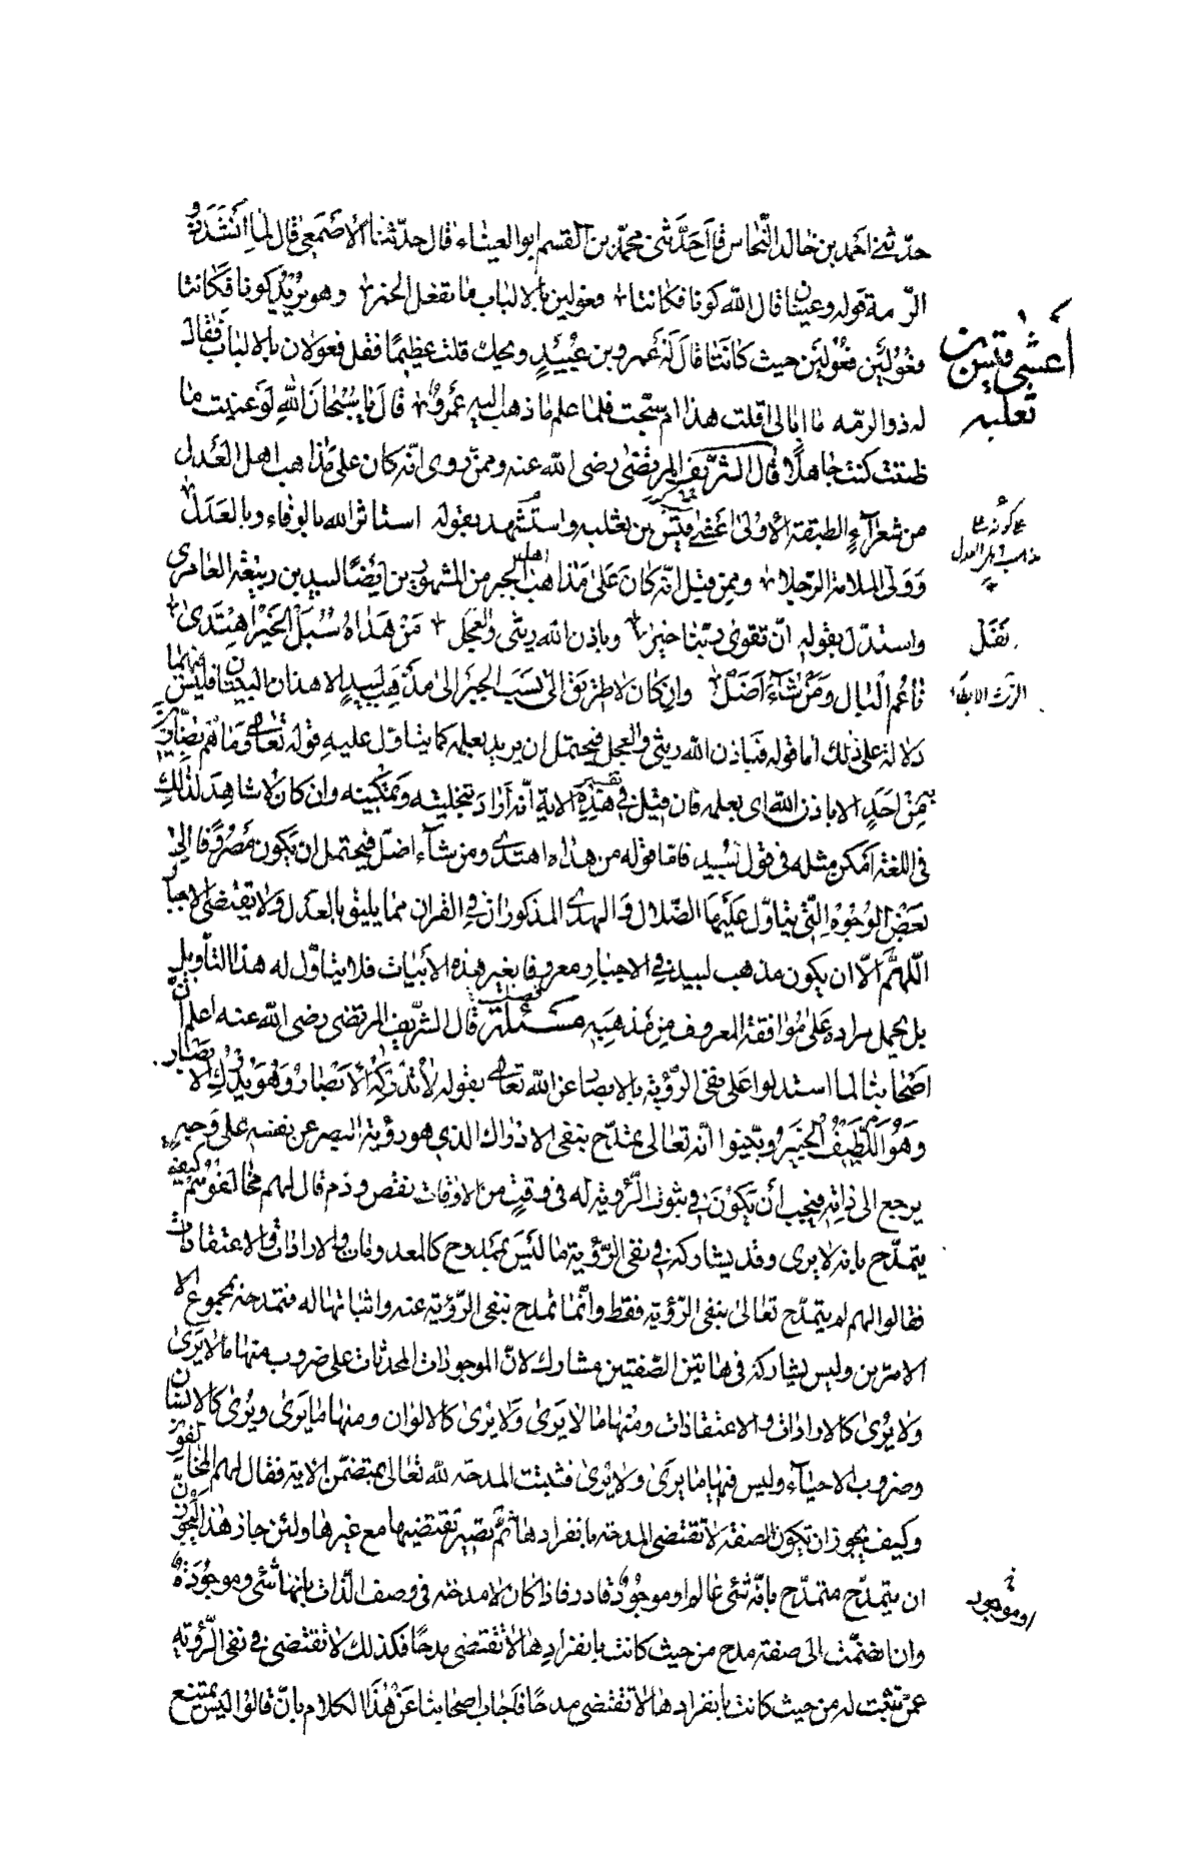 حدّثني احمد بن خالد النّخاس قال حدّثني محمّد بن القسم ابو العيناء قال حدّثنا الأصمعي قال لما انشد ذو
الرّمة قوله وعينان قال الله كونا فكانتا فعولين بالالباب ما تفعل الخمر وهو يريد كونا فكانتا
فعولين فعولين حيث كانتا قال له عمرو بن عبيدٍ ويحك قلت عظيمًا فقل فعولان بالالباب فقال
له ذو الرمّه ما ابالى اقلت هذا ام سبّحت فلما علم ما ذهب اليه عمرو قال يا سبحان الله لو عنيت ما
ظننت كنت جاهلًا قال الشريف المرتضى رضى الله عنه وممن روى انّه كان على مذاهب اهل العدل
من شعرآء الطبقة الأولى اعشى قيس بن ثعلبه واستشهد بقوله استاثر الله بالوفاء وبالعدل
وولى الملامة الرّجلا وممن قيل انّه كان على مذاهب اهل الجبر من المشهورين ايضًا لبيد بن ربيعة العامرى
واستدلّ بقوله انّ تقوى ربّنا خير وباذن الله ريثى والعجل مَنْ هداه سبل الخير اهتدى
ناعم البال ومن شآء اضل وان كان لا طريق الى نسب الجبر الى مذهب لبيد الا هذان البيتان فليس فيهما
دلالة على ذلك اما قوله فباذن الله ريثى والعجل فيحتمل ان يريد بعلمه كما يتاول عليه قوله تعالى وما هم بضارين
به من احدٍ الا باذن الله اى بعلمه فان قيل في تفسير هذه الاية انّه اراد بتخليته وتمكينه وان كان لا شاهد لذلك
فى اللغة امكن مثله فى قول لبيد فامّا قوله من هداه اهتدى ومن شآء اضلّ فيحتمل ان يكون مصروفًا الى
بعض الوجوه التي يتاوّل عليها الضّلال والهدى المذكوران في القران مما يليق بالعدل ولا يقتضى الاجبار
اللهمّ الّا ان يكون مذهب لبيد في الاجبار معروفا بغير هذه الأبيات فلا يتاوّل له هذا التأويل
بل يحمل مراده على موافقة المعروف من مذهبه مسئلة قال الشريف المرتضى رضى الله عنه اعلم أن
اصحابنا لما استدلوا على نفى الرّؤية بالابصار عن الله تعالى بقوله لا تدركه الأبصار وهو يدرك الابصار
وهو اللّطيف الخبير وبيّنوا أنّه تعالى تمدّح بنفى الادراك الذي هو رؤية البصر عن نفسه على وجهٍ
يرجع الى ذاته فيجب أن يكون في ثبوت الرّؤية له فى وقتٍ من الاوقات نقص وذم قال لهم مخالفوهم كيف
يتمدّح بانه لا يرى وقد يشاركه في نفى الرّؤية ما ليس بممدوح كالمعدومات والارادات والاعتقادات
فقالوا لهم لم يتمدّح تعالى بنفى الرّؤية فقط وانّما تمدح بنفى الرّؤية عنه واثباتها له فتمدحه بمجموع الا
الامرين وليس يشاركه فى هاتين الصّفتين مشارك لانّ الموجودات المحدثات على ضروب منها ما لا يَرى
ولا يُرى كالارادات والاعتقادات ومنها ما لا يَرى ولا يُرى كالالوان ومنها ما يَرى ويُرى كالانسان
وضروب الاحيآء وليس فيها ما يَرى ولا يُرى فثبتت المدحة لله تعالى بمتضمّن الاية فقال لهم المخالفون
وكيف يجوز ان تكون الصفة لا تقتضى المدحة بانفرادها ثمّ تصير تقتضيها مع غيرها ولئن جاز هذا ليجوزنّ
ان يتمدّح متمدّح بانّه شئ عالم او موجودٌ قادر فاذا كان لا مدحة فى وصف الذّات بانها شئ وموجودة
وان انضمّت الى صفة مدح من حيث كانت بانفرادها لا تقتضى مدحًا فكذلك لا تقتضى في نفى الرّؤية
عمّن ثبتت له من حيث كانت بانفرادها لا تقتضى مدحًا فاجاب اصحابنا عن هذا الكلام بانّ قالوا ليس يمتنع
اعشى قيس بن
ثعلبه
مذاهب اهل العدل
او موجود